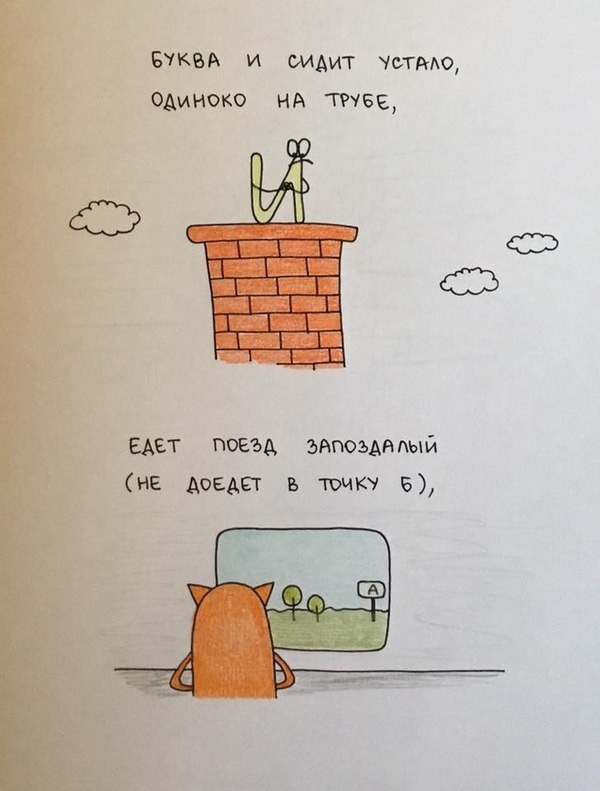 БУКВА И СИДИТ УСТАЛО,
ОДИНОКО НА ТРУБЕ,
ЕДЕТ ПОЕЗД ЗАПОЗДАЛЫЙ
(НЕ ДОЕДЕТ В ТОЧКУ Б),
А